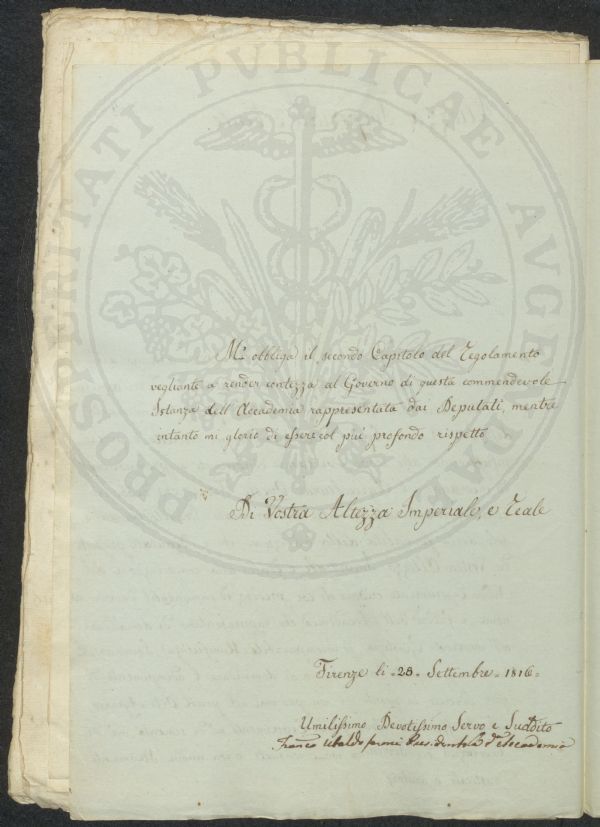 PROSPERITATI PVBLICAE AVGENDAE
M'obbliga il secondo Capitolo del Regolamento
vegliante a render contezza al Governo di questa commendevole
Istanza dell'Accademia rappresentata dai Deputati, mentre
intanto mi glorio di essere col piú profondo rispetto
Di Vostra Altezza Imperiale, e Reale
Firenze li - 28 - Settembre - 1816 -
Umilissimo Devotissimo Servo e Suddito
Franco Ubaldo Feroni Presidente dell'Accademia